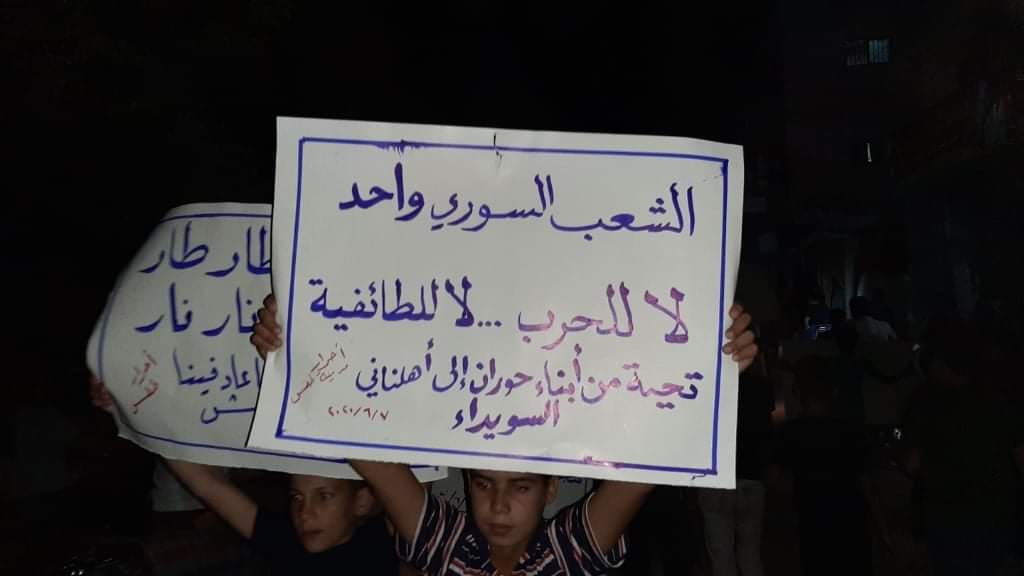 الشعب السوري واحد
لا للحرب ... لا للطائفية
تحية من أبناء حوران إلى أهلنا في
السويداء
أحرار
٢٠٢٠/٦/٧
طار طار
نار نار
عاد فينا
أحرار